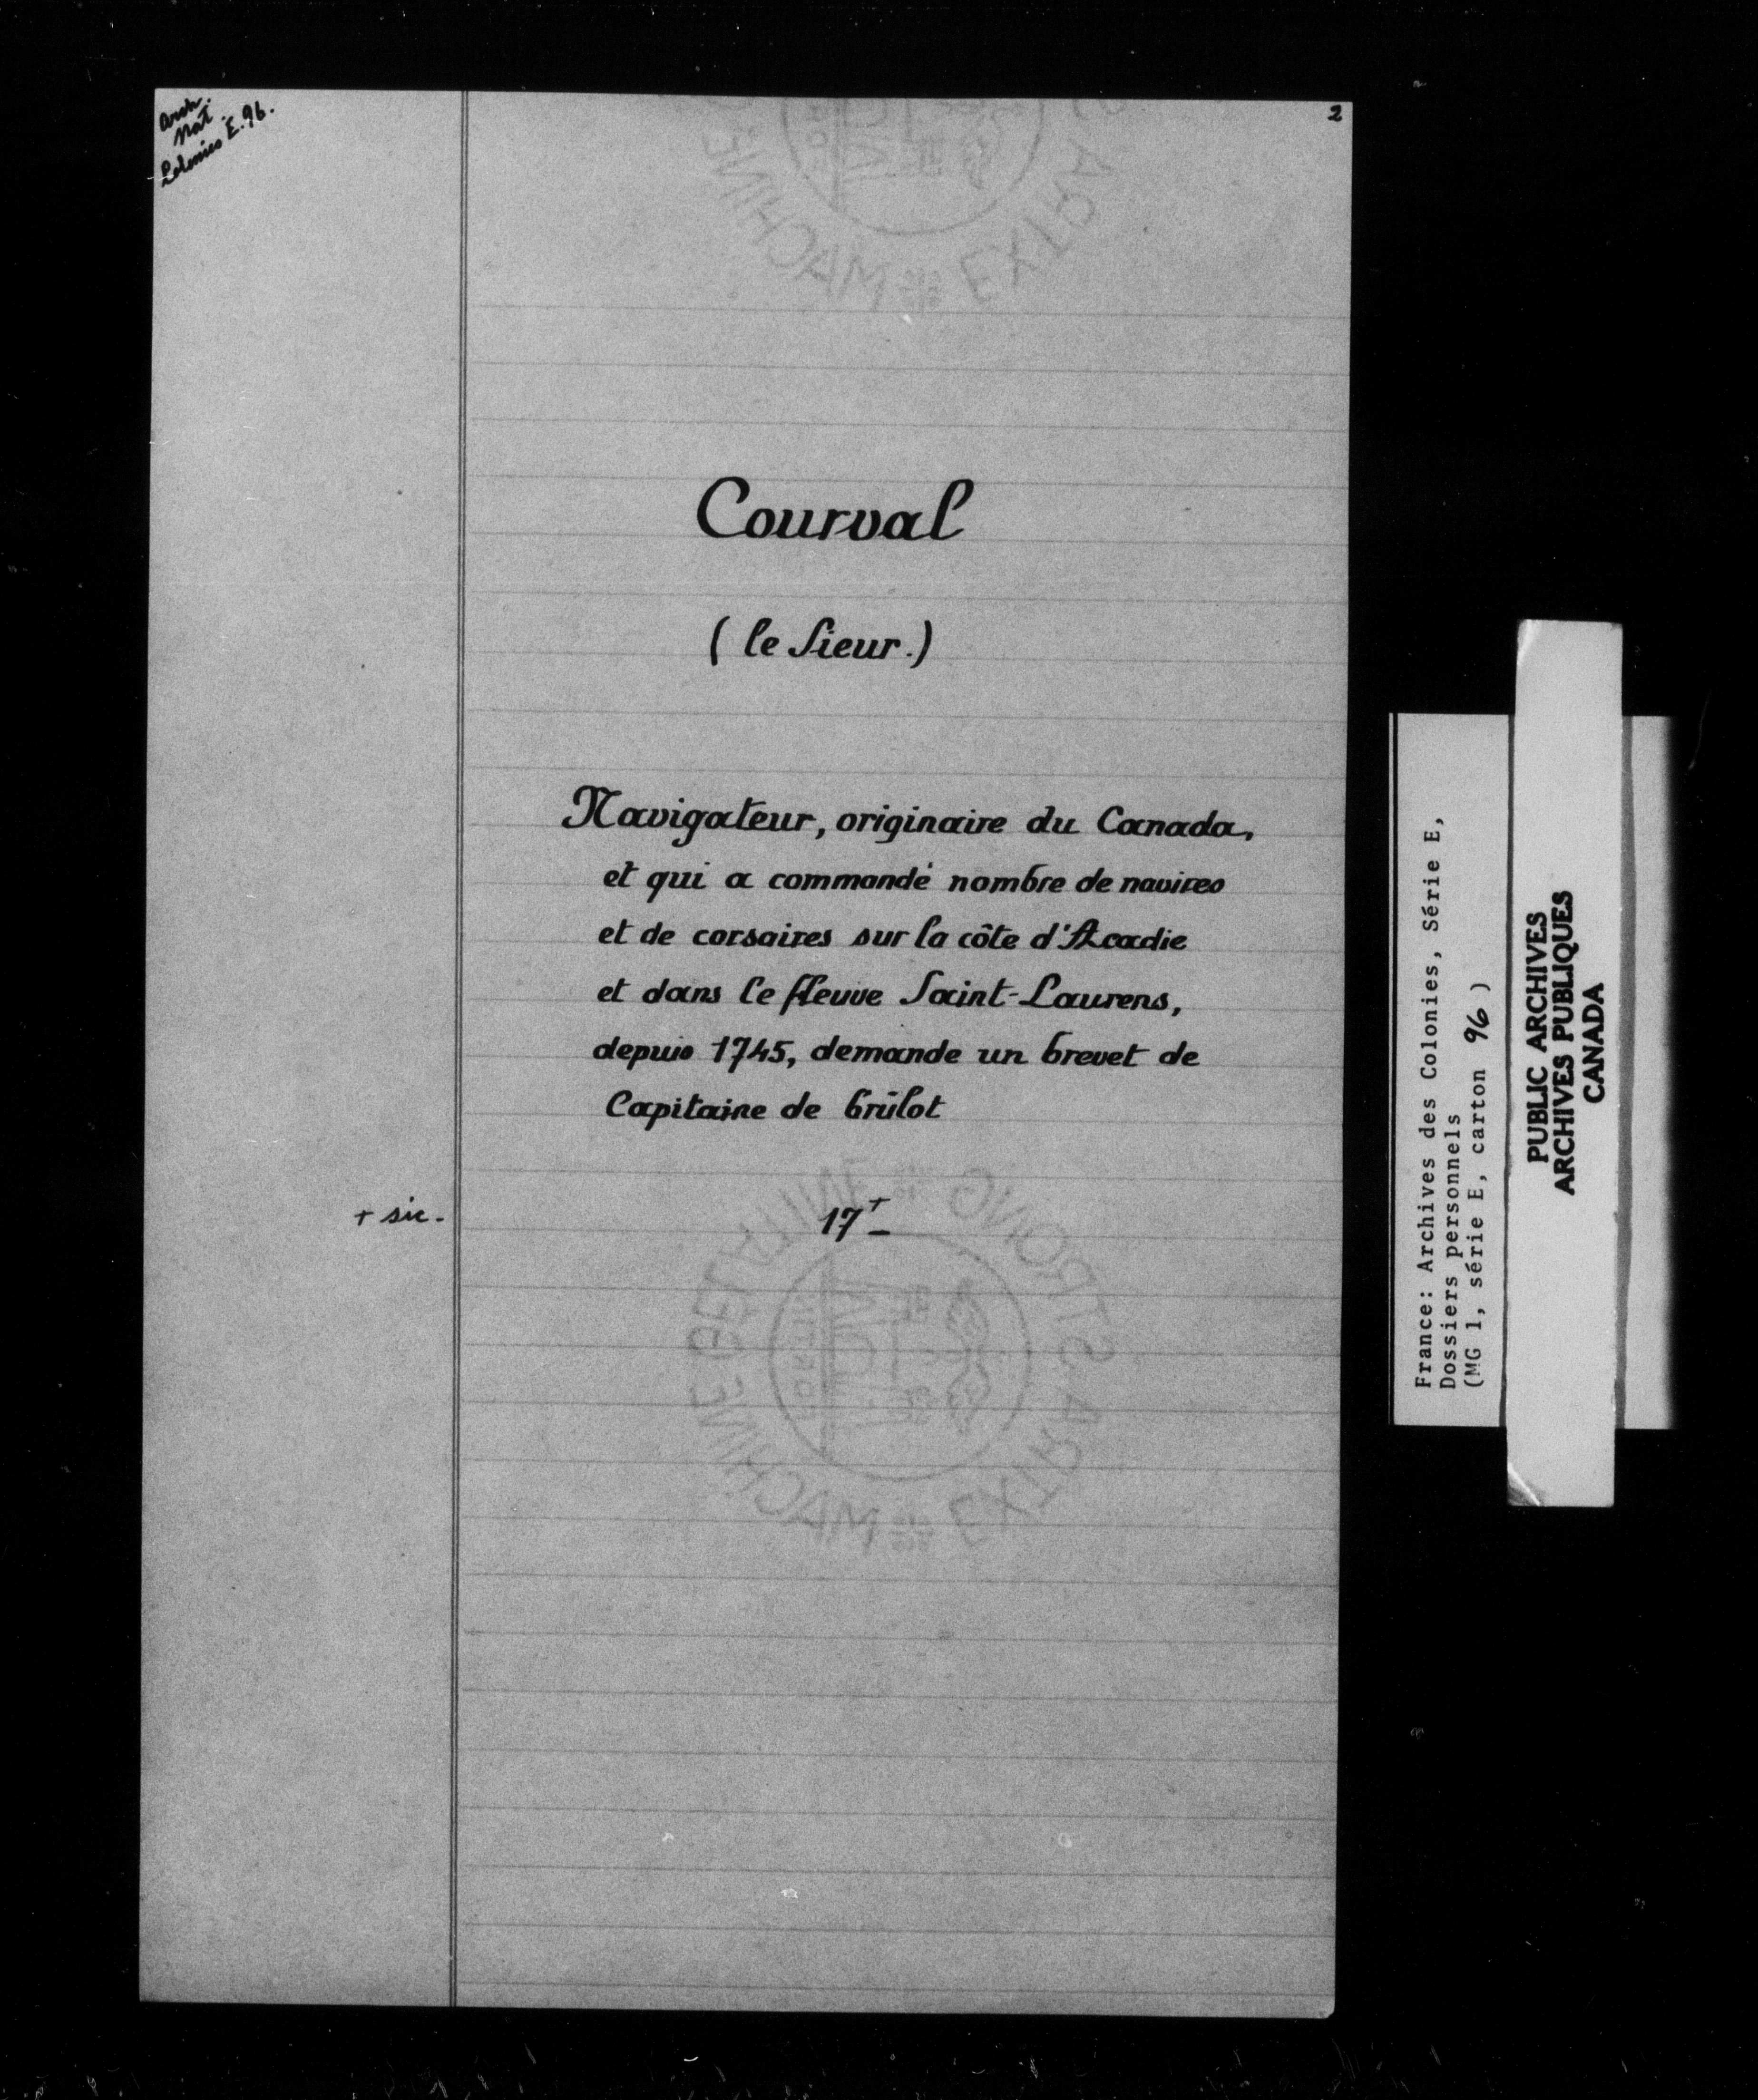 Arch.
Nat.
Colonies E. 96.
2
Courval
(le Sieur.)
Navigateur, originaire du Canada,
et qui a commandé nombre de navires
et de corsaires sur la côte d'Acadie
et dans le fleuve Saint-Laurens,
depuis 1745, demande un brevet de
Capitaine de brûlot
+ sic.
17+_
STRONG
MACHINE EXTRA
France: Archives des Colonies, Série E,
Dossiers personnels
(MG 1, série E, carton 96 )
PUBLIC ARCHIVES
ARCHIVES PUBLIQUES
CANADA